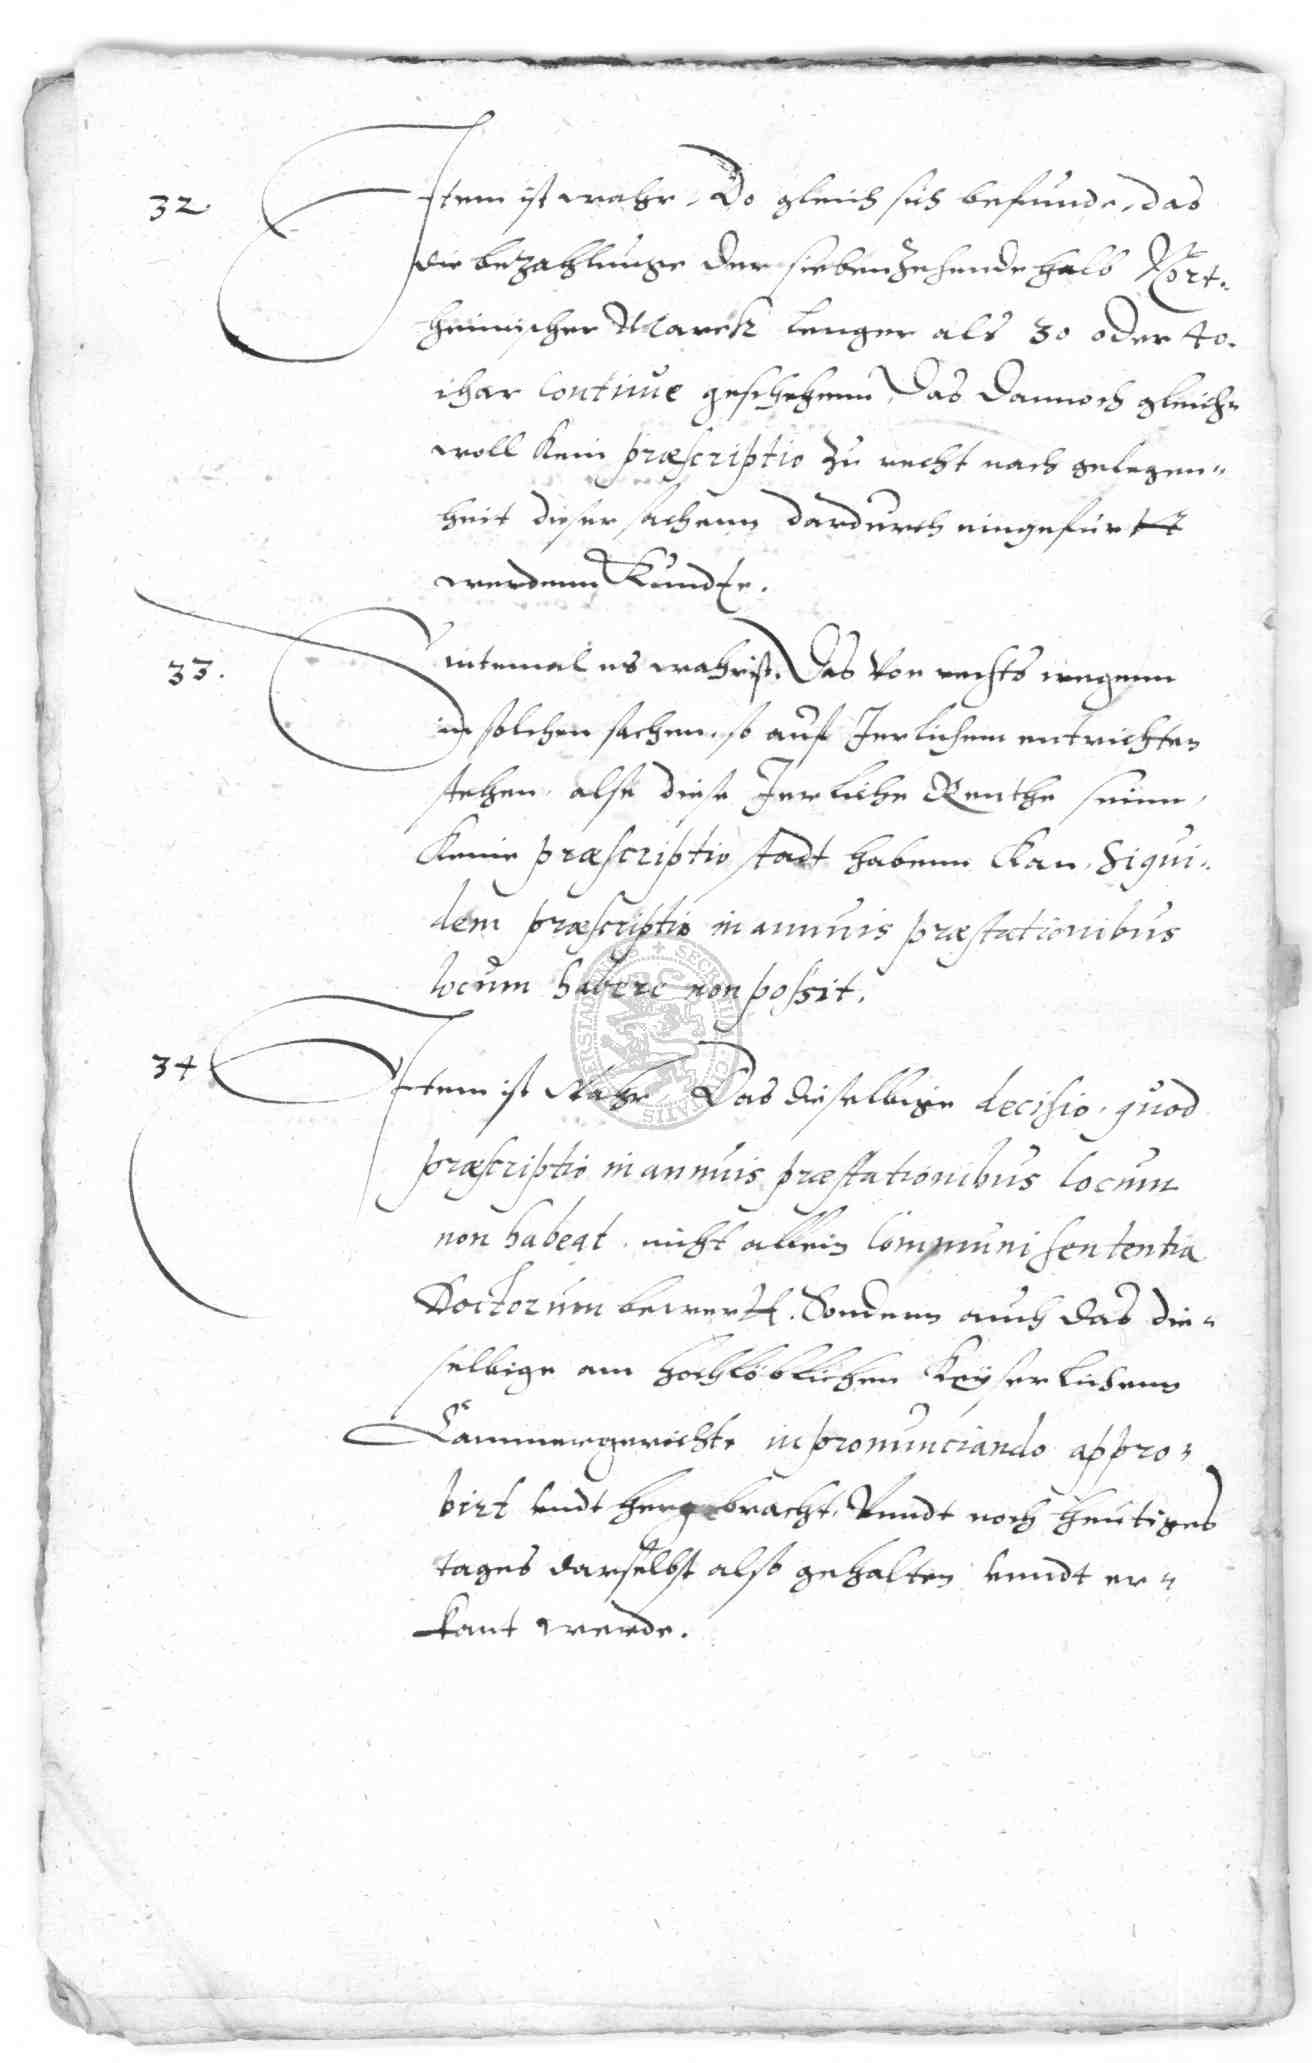 32. Item ist wahr, Do gleich sich befunde, das
die bezahlunge der siebenzehende halb Nort-
heimischer Marck lenger als 30 oder 40.
ihar continue geschehenn, Das dannoch gleich-
woll kein præscriptio zu recht nach gelegen-
heit dieser sachenn dardurch eingefurtt
werdenn kundte.
33. Sintemal es wahr ist, Das von rechts wegenn
in solchen sachen, so auf Jerlichem entrichten
stehen, alse diese Jerliche Renthe seinn,
keine præscriptio stadt habenn kan, Siqui-
dem præscriptio in annuis præstationibus
locum habere non possit.
34 Item ist Wahr Das dieselbige decisio, quod
præscriptio in annuis præstationibus locum
non habeat, nicht allein Communi sententia
Doctorum bewertt, Sondern auch das die-
selbige am hochloblichen Keyserlichenn
Cammergerichte in pronunciando appro-
birt undt hergebracht, Unndt noch heutiges
tages darselbst also gehalten unndt er-
kant werde.